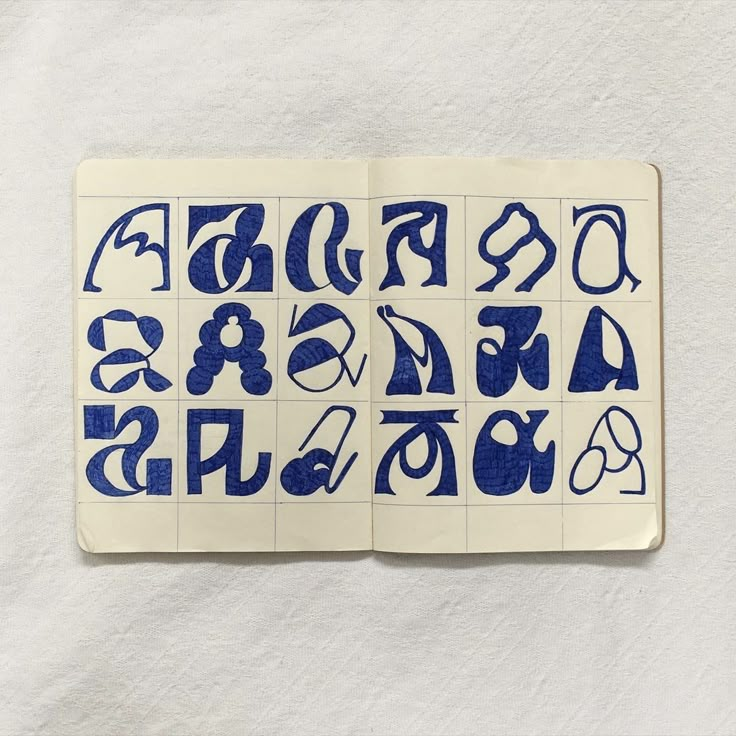 A a a A a a
a A a A a A
a A a A a a